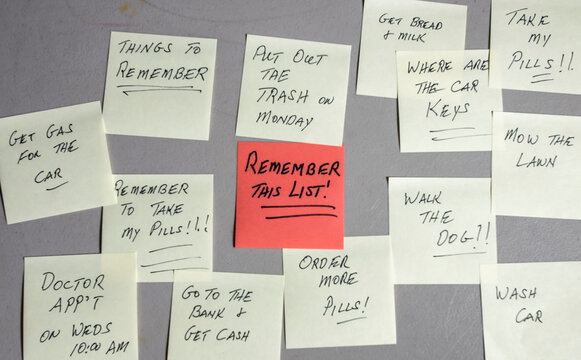 THINGS TO
REMEMBER
PUT OUT
THE
TRASH ON
MONDAY
GET BREAD
& MILK
TAKE
MY
PILLS!!
WHERE ARE
THE CAR
KEYS
GET GAS
FOR THE
CAR
REMEMBER
THIS LIST!
MOW THE
LAWN
REMEMBER
TO TAKE
MY PILLS!!!
WALK
THE
DOG!!
DOCTOR
APP'T
ON WEDS
10:00 AM
GO TO THE
BANK &
GET CASH
ORDER
MORE
PILLS!
WASH
CAR